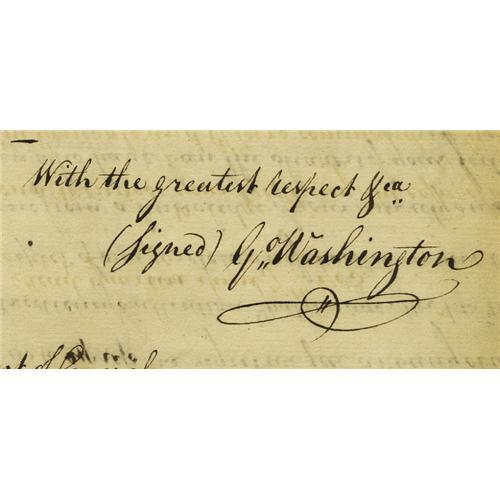 With the greatest respect &ca
(Signed) Go Washington